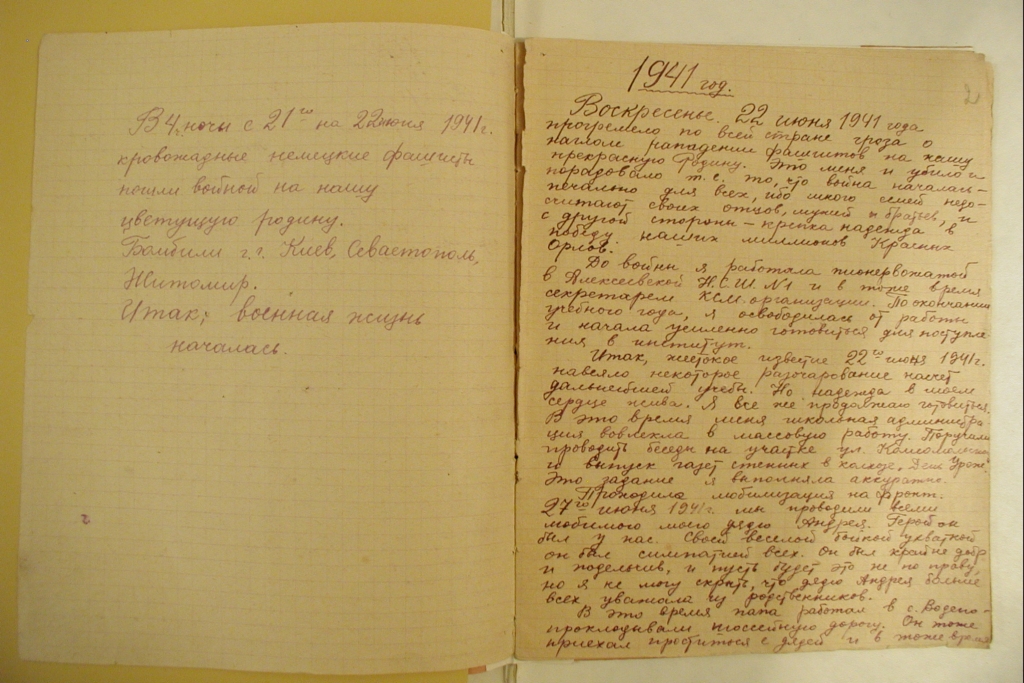 В 4 ночи с 21го на 22 июня 1941г.
кровожадные немецкие фашисты
пошли войной на нашу
цветущую родину.
Бомбили г.г. Киев, Севастополь,
Житомир.
Итак, военная жизнь
началась.
2
1941 год.
Воскресенье. 22 июня 1941 года
прогремело по всей стране гроза о
наглом нападении фашистов на нашу
прекрасную Родину. Это меня и убило и
порадовало т.е. то, что война началась –
печально для всех, ибо много семей недо-
считают своих отцов, мужей и братьев, и
с другой стороны – крепка надежда в
победу наших миллионов Красных
Орлов.
До войны я работала пионервожатой
в Алексеевской Н.С.Ш. №1 и в тоже время
секретарем КСМ. организации. По окончании
учебного года, я освободилась от работы
и начала усиленно готовиться для поступле-
ния в институт.
Итак, жестокое известие 22го июня 1941г.
навеяло некоторое разочарование насчет
дальнейшей учебы. Но надежда в моем
сердце жива. Я все же продолжаю готовиться.
В это время меня школьная администра
ция вовлекла в массовую работу. Поручили
проводить беседы на участке ул. Комсомольской
и выпуск газет стенных в колхозе
Это задание я выполняла аккуратно.
Проходила мобилизация на фронт.
27го июня 1941г. мы проводили всеми
любимого моего дядю Андрея. Герой он
был у нас. Своей веселой бойкой ухваткой
он был симпатией всех. Он был крайне добр
и поделчив, и пусть будет это не по праву,
но я не могу скрыть, что дядю Андрея больше
всех уважала из родственников.
В это время папа работал в с.
прокладывали шоссейную дорогу. Он тоже
приехал проститься с дядей и в тоже время